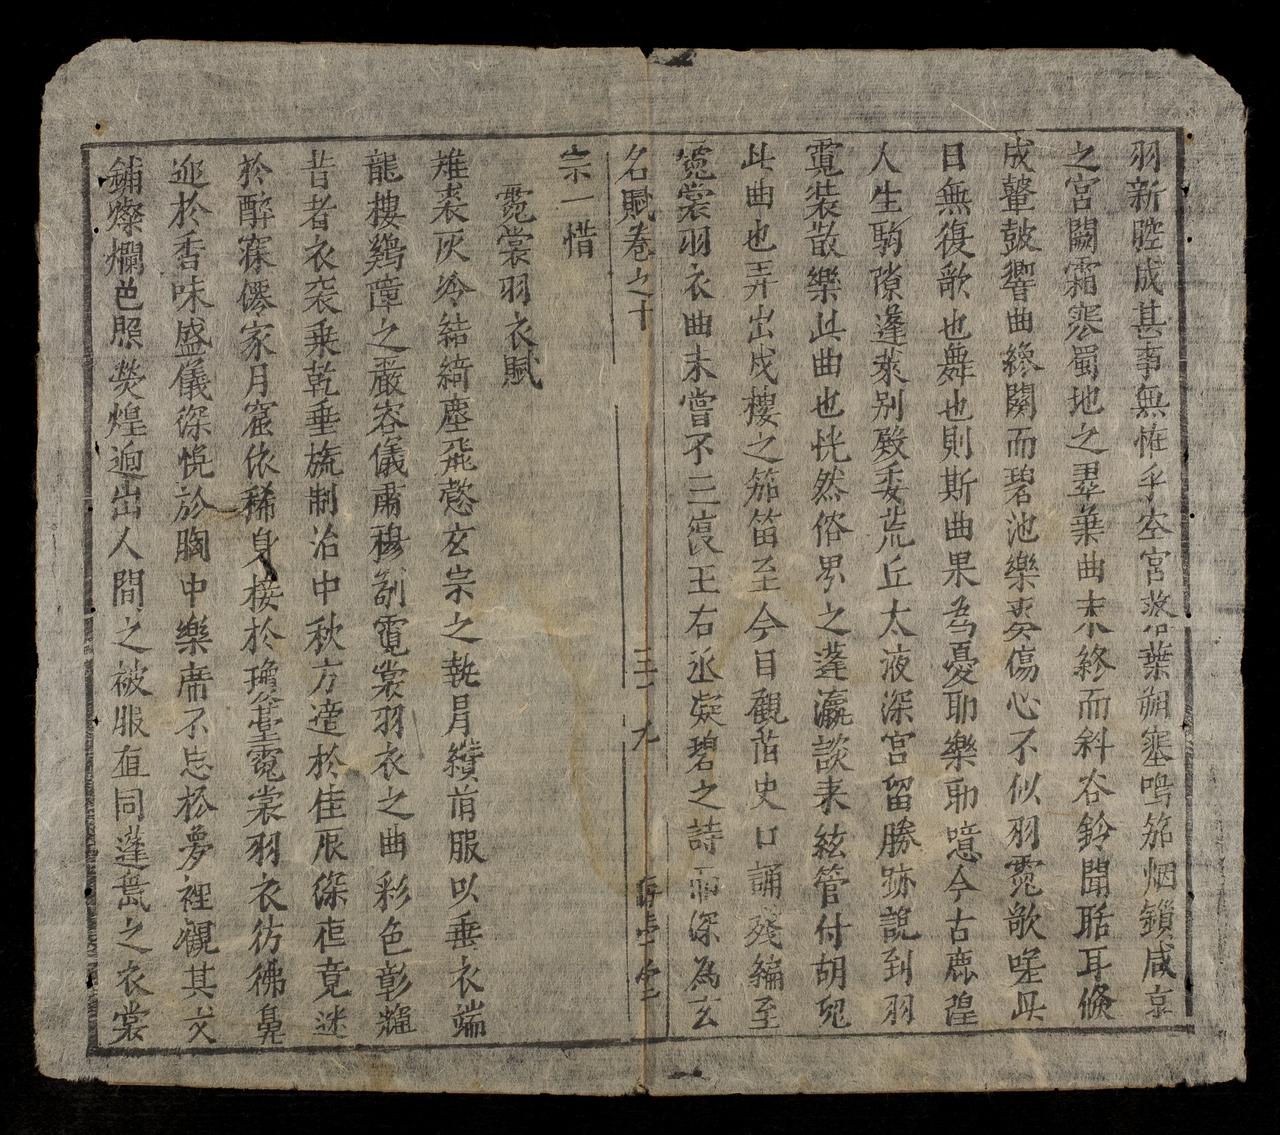 羽新腔成甚事無惟乎空宮落葉朔塞鳴笳烟鎖咸京
之宮闕霜寒蜀地之翠華曲未終而斜谷鈴聞聒耳倏
成鼙鼓響曲纔闋而碧池樂奏傷心不似羽霓歌嗟此
日無復歌也舞也則斯曲果為憂耶樂耶噫今古鹿隍
人生駒隙蓬萊别殿委荒丘太液深宮留勝跡說到羽
霓裝散樂此曲也恍然俗界之蓬瀛談来絃管付胡兒
此曲也弄出戍樓之笳笛至今目觀前史口誦殘編至
霓裳羽衣曲未嘗不三復王右丞凝碧之詩而深為玄
名賦卷之十 三十九 堂
宗一惜
霓裳羽衣賦
雉裘灰冷結綺塵飛懿玄宗之執冃纘前服以垂衣端
龍樓鷄障之嚴容儀肅穆剏霓裳羽衣之曲彩色彰輝
昔者衣袞乗乾垂旒制治中秋方遭於佳辰深夜竟迷
於醉寐僊家月窟依稀身接於瓊臺霓裳羽衣彷彿鼻
迎於香味盛儀深悅於胸中樂席不忘於夢裡覩其文
鋪燦爛色照熒煌逈出人間之被服直同蓬島之衣裳